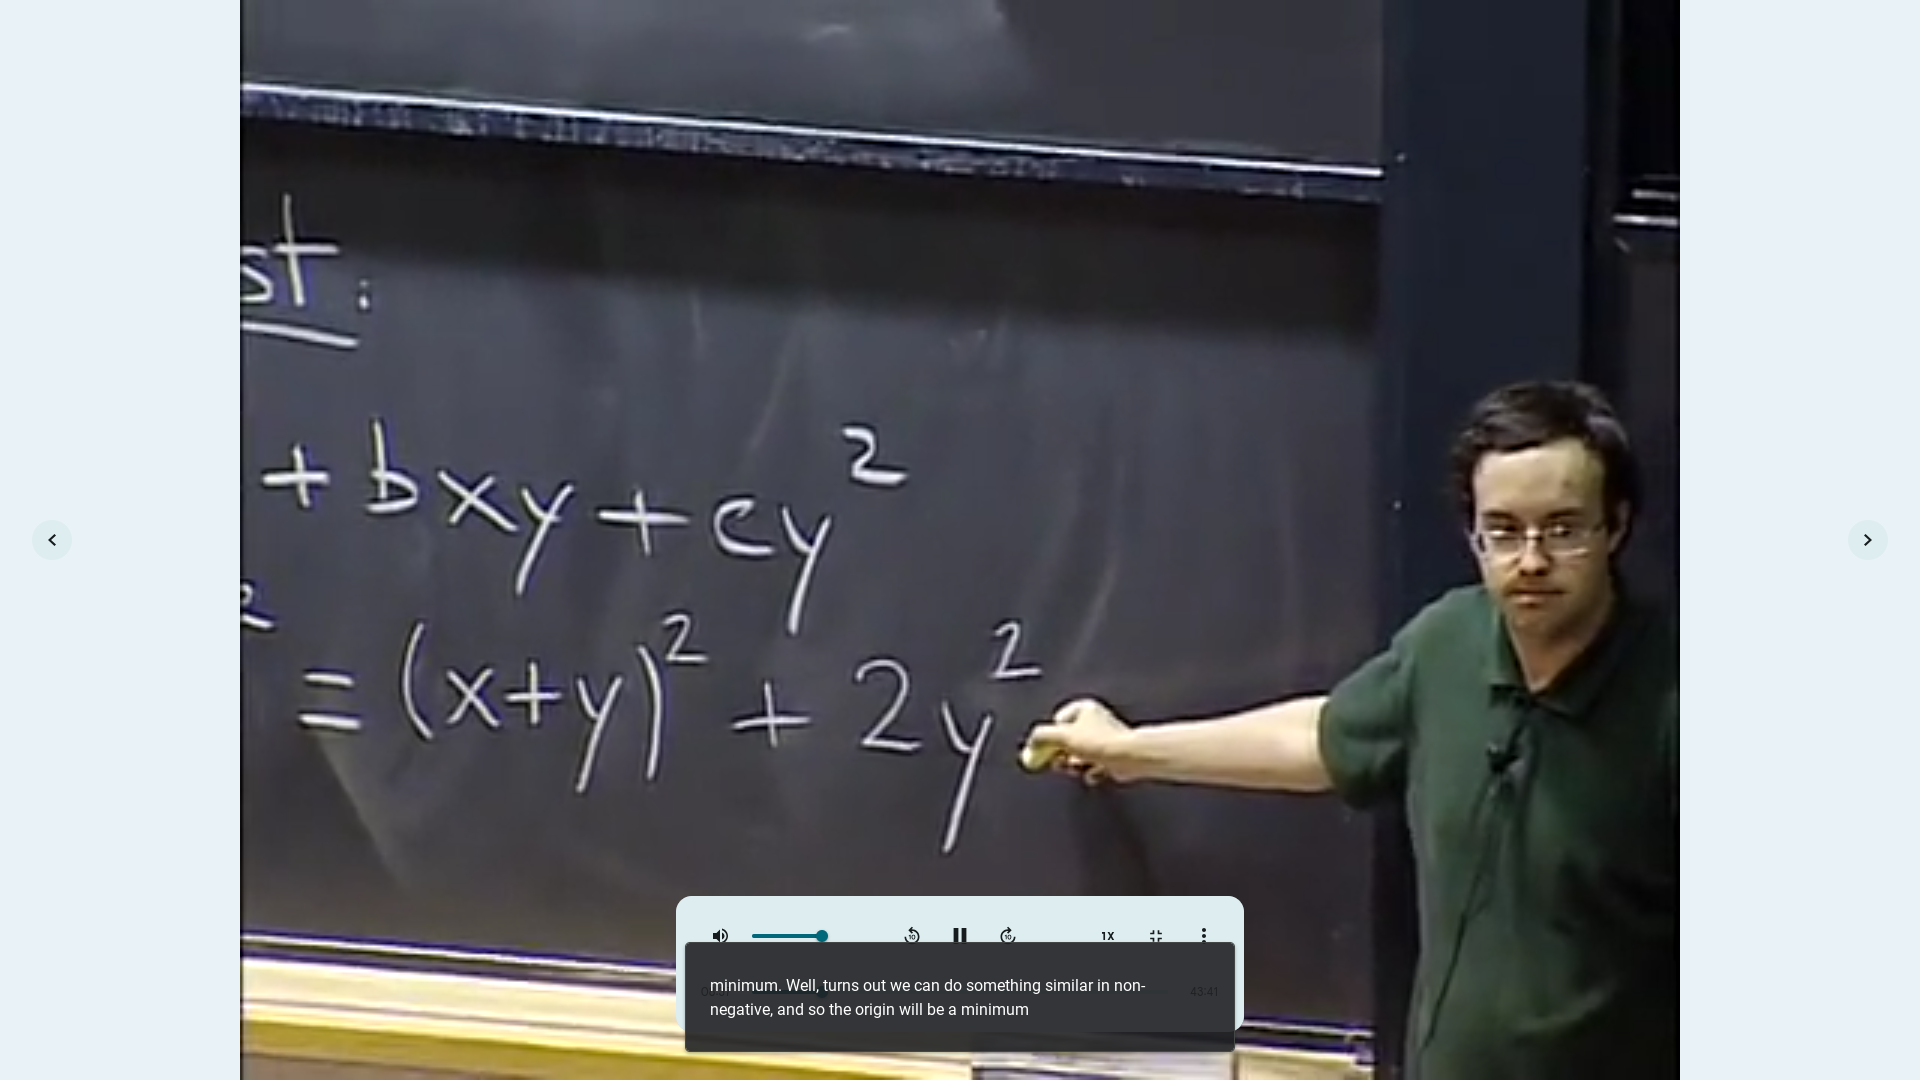 st:
+ bxy + cy²
² = (x+y)² + 2y²
10
10
1X
43:41
minimum. Well, turns out we can do something similar in non-
negative, and so the origin will be a minimum